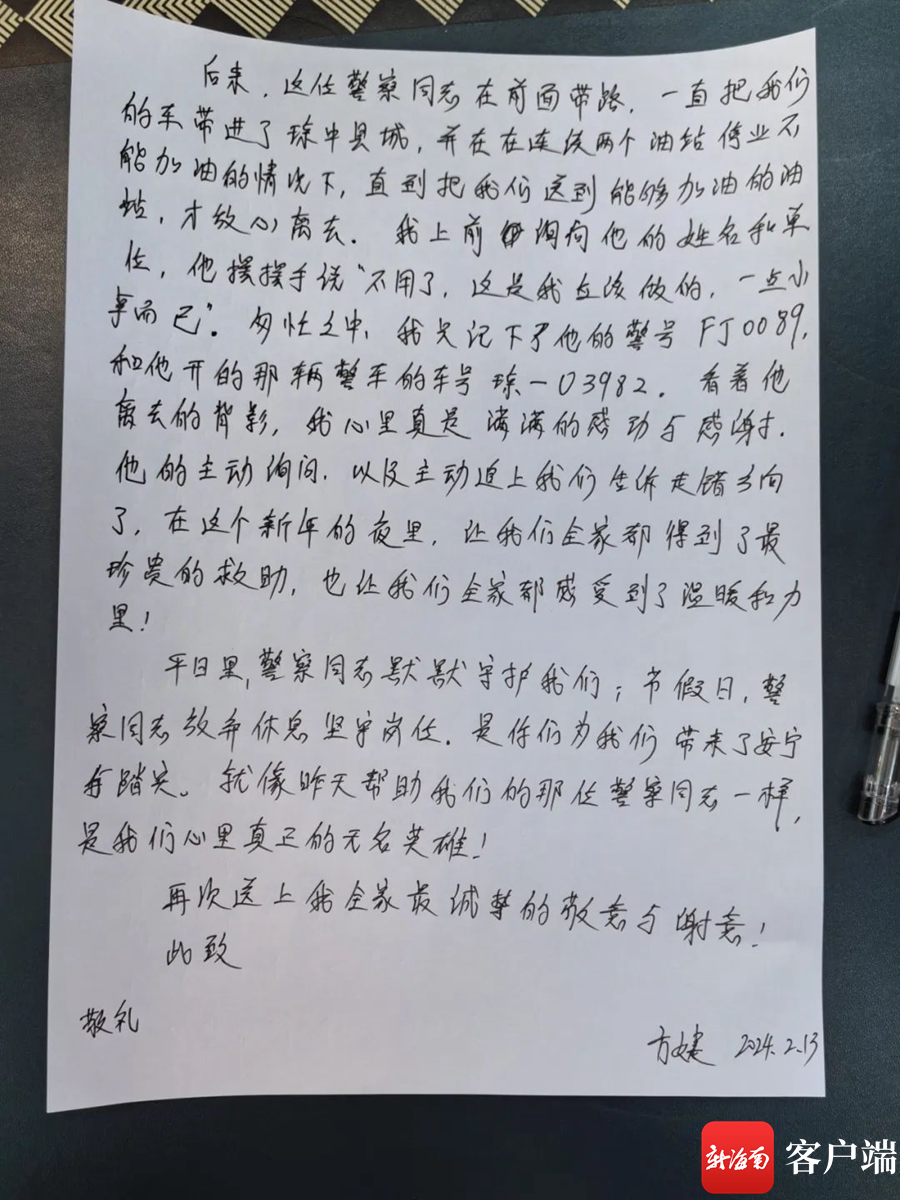 后来，这位警察同志在前面带路，一直把我们
的车带进了琼中县城，并在在连续两个油站停业不
能加油的情况下，直到把我们送到能够加油的油
站，才放心离去。我上前询问他的姓名和单
位，他摆摆手说“不用了，这是我应该做的，一点小
事而已”。匆忙之中，我只记下了他的警号FJ0089，
和他开的那辆警车的车号琼-03982。看着他
离去的背影，我心里真是满满的感动与感谢，
他的主动询问，以及主动追上我们告诉走错方向
了，在这个新年的夜里，让我们全家都得到了最
珍贵的救助，也让我们全家都感受到了温暖和力
里！
平日里，警察同志默默守护我们；节假日，警
察同志放弃休息坚守岗位。是你们为我们带来了安宁
与踏实。就像昨天帮助我们的那位警察同志一样，
是我们心里真正的无名英雄！
再次送上我全家最诚挚的敬意与谢意！
此致
敬礼
方 2024.2.13
新海南 客户端